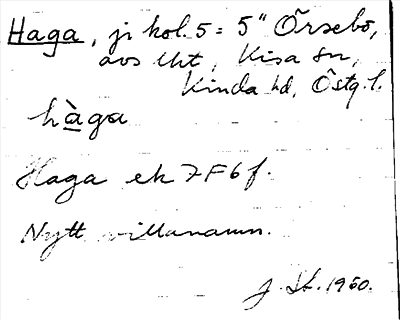 Haga, jr kol. 5 = 5" Örsebo,
avs lht, Kisa sn,
Kinda hd, Östg. l.
hàga
Haga ek 7F6f.
Nytt villanamn.
J. St. 1960.